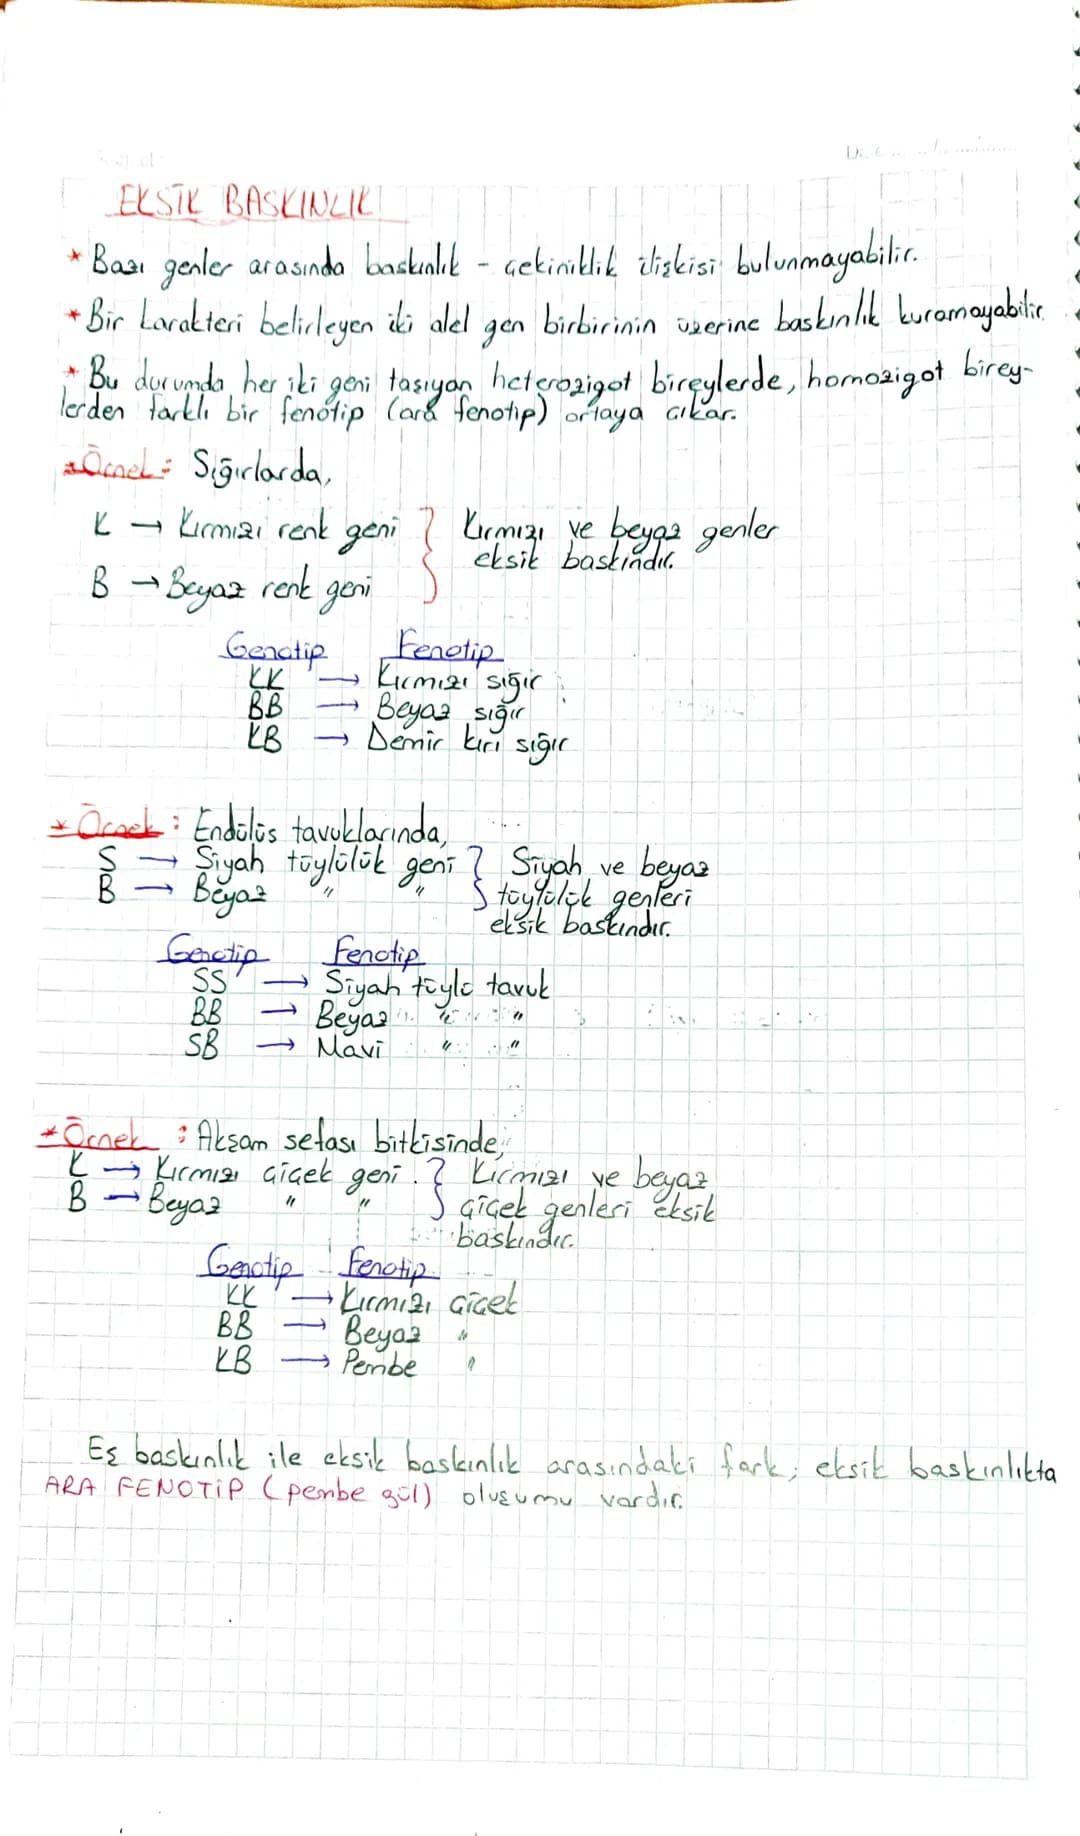 EKSİK BASKINLIK
* Bazı genler arasında baskınlık - çekiniklik ilişkisi bulunmayabilir.
* Bir karakteri belirleyen iki alel gen birbirinin üzerine baskınlık kuramayabilir.
* Bu durumda her iki geni taşıyan heterozigot bireylerde, homozigot birey-
lerden farklı bir fenotip (ara fenotip) ortaya çıkar.
* Örnek : Sığırlarda,
K → Kırmızı renk geni } Kırmızı ve beyaz genler
eksik baskındır.
B → Beyaz renk geni
Genotip Fenotip
KK → Kırmızı sığır
BB → Beyaz sığır
KB → Demir kırı sığır
* Örnek : Endülüs tavuklarında,
S → Siyah tüylülük geni } Siyah ve beyaz
B → Beyaz " " tüylülük genleri
eksik baskındır.
Genotip Fenotip
SS → Siyah tüylü tavuk
BB → Beyaz " "
SB → Mavi " "
* Örnek : Akşam sefası bitkisinde,
K → Kırmızı çiçek geni } Kırmızı ve beyaz
B → Beyaz " " çiçek genleri eksik
baskındır.
Genotip Fenotip
KK → Kırmızı çiçek
BB → Beyaz "
KB → Pembe "
Eş baskınlık ile eksik baskınlık arasındaki fark; eksik baskınlıkta
ARA FENOTİP (pembe gül) oluşumu vardır.